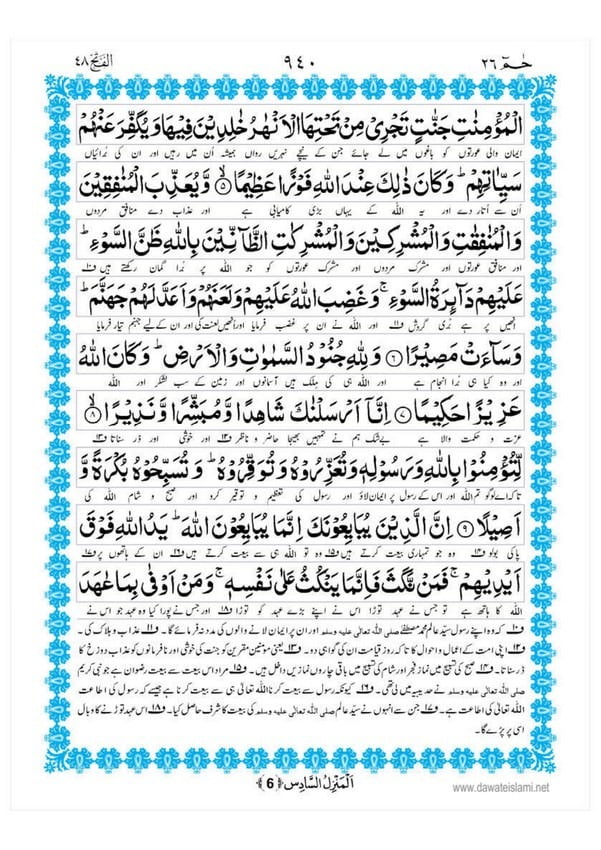 حٰمٓ ٢٦
٩٤٠
الفتح ٤٨
الْمُؤْمِنٰتِ جَنّٰتٍ تَجْرِیْ مِنْ تَحْتِهَا الْاَنْهٰرُ خٰلِدِیْنَ فِیْهَا وَ یُكَفِّرَ عَنْهُمْ
ایمان والی عورتوں کو باغوں میں لے جائے جن کے نیچے نہریں رواں ہمیشہ اُن میں رہیں اور ان کی بُرائیاں
سَیِّاٰتِهِمْؕ وَ كَانَ ذٰلِكَ عِنْدَ اللّٰهِ فَوْزًا عَظِیْمًا ﴿۵﴾ وَّ یُعَذِّبَ الْمُنٰفِقِیْنَ
اُن سے اُتار دے اور یہ اللہ کے یہاں بڑی کامیابی ہے اور عذاب دے منافق مردوں
وَ الْمُنٰفِقٰتِ وَ الْمُشْرِكِیْنَ وَ الْمُشْرِكٰتِ الظَّآنِّیْنَ بِاللّٰهِ ظَنَّ السَّوْءِؕ
اور منافق عورتوں اور مشرک مردوں اور مشرک عورتوں کو جو اللہ پر بُرا گمان رکھتے ہیں
عَلَیْهِمْ دَآىٕرَةُ السَّوْءِۚ وَ غَضِبَ اللّٰهُ عَلَیْهِمْ وَ لَعَنَهُمْ وَ اَعَدَّ لَهُمْ جَهَنَّمَؕ
انھیں پر ہے بُری گردش اور اللہ نے ان پر غضب فرمایا اور اُنھیں لعنت کی اور ان کے لیے جہنم تیار فرمایا
وَ سَآءَتْ مَصِیْرًا ﴿۶﴾ وَ لِلّٰهِ جُنُوْدُ السَّمٰوٰتِ وَ الْاَرْضِؕ وَ كَانَ اللّٰهُ
اور وہ کیا ہی بُرا انجام ہے اور اللہ ہی کی ملک ہیں آسمانوں اور زمین کے سب لشکر اور اللہ
عَزِیْزًا حَكِیْمًا ﴿۷﴾ اِنَّاۤ اَرْسَلْنٰكَ شَاهِدًا وَّ مُبَشِّرًا وَّ نَذِیْرًا ﴿۸﴾
عزت و حکمت والا ہے بےشک ہم نے تمہیں بھیجا حاضر و ناظر اور خوشی اور ڈر سناتا
لِّتُؤْمِنُوْا بِاللّٰهِ وَ رَسُوْلِهٖ وَ تُعَزِّرُوْهُ وَ تُوَقِّرُوْهُؕ وَ تُسَبِّحُوْهُ بُكْرَةً وَّ
تاکہ اے لوگو تم اللہ اور اس کے رسول پر ایمان لاؤ اور رسول کی تعظیم و توقیر کرو اور صبح و شام اللہ کی
اَصِیْلًا ﴿۹﴾ اِنَّ الَّذِیْنَ یُبَایِعُوْنَكَ اِنَّمَا یُبَایِعُوْنَ اللّٰهَؕ یَدُ اللّٰهِ فَوْقَ
پاکی بولو وہ جو تمہاری بیعت کرتے ہیں وہ تو اللہ ہی سے بیعت کرتے ہیں ان کے ہاتھوں پر
اَیْدِیْهِمْۚ فَمَنْ نَّكَثَ فَاِنَّمَا یَنْكُثُ عَلٰى نَفْسِهٖۚ وَ مَنْ اَوْفٰى بِمَا عٰهَدَ
اللہ کا ہاتھ ہے تو جس نے عہد توڑا اس نے اپنے بڑے عہد کو توڑا اور جس نے پورا کیا وہ عہد جو اس نے
کہ وہ اپنے رسول سیّدِ عالم محمد مصطفٰے صلی اللہ تعالی علیہ وسلم اور ان پر ایمان لانے والوں کی مدد نہ فرمائے گا۔ عذاب و ہلاک کی۔
اپنی امت کے اعمال و احوال کا تاکہ روز قیامت ان کی گواہی دو۔ یعنی مومنین مقربین کو جنت کی خوشی اور نافرمانوں کو عذاب دوزخ کا
ڈر سناتا۔ صبح کی تسبیح میں نماز فجر اور شام کی تسبیح میں باقی چاروں نمازیں داخل ہیں۔ مراد اس بیعت سے بیعت رضوان ہے جو نبی کریم
صلی اللہ تعالی علیہ وسلم نے حدیبیہ میں لی تھی۔ کیونکہ رسول سے بیعت کرنا اللہ تعالٰی ہی سے بیعت کرنا ہے جیسے کہ رسول کی اطاعت
اللہ تعالٰی کی اطاعت ہے۔ جن سے انہوں نے سیّدِ عالم صلی اللہ تعالی علیہ وسلم کی بیعت کا شرف حاصل کیا۔ اس عہد توڑنے کا وبال
اسی پر پڑے گا۔
اَلْمَنْزِلُ السَّادِس ﴿6﴾
www.dawateislami.net